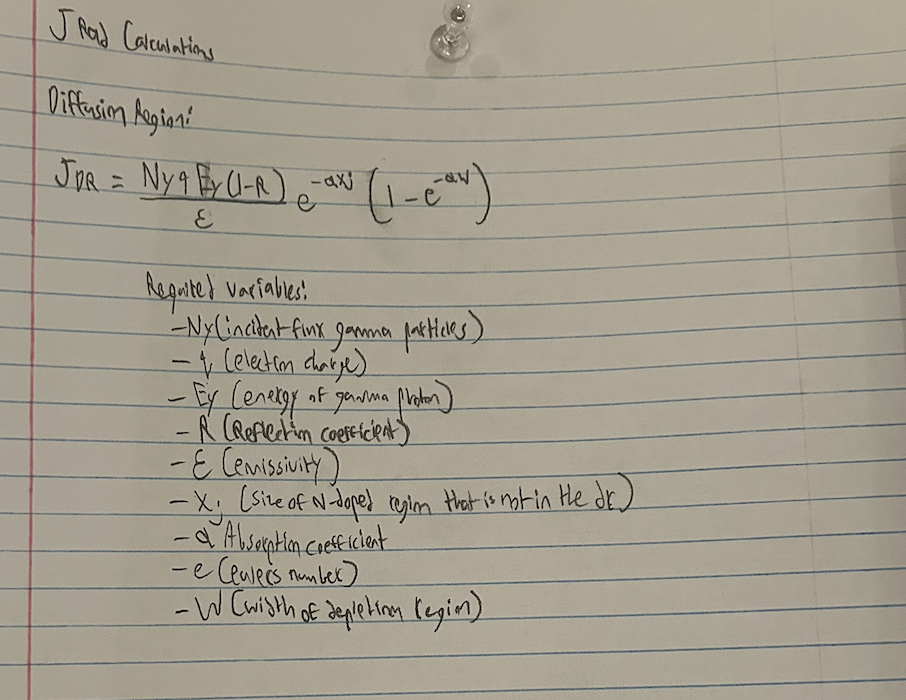 J Rad Calculations
Diffusion Region:
J_DR = Nγ q Eγ (1-R) / ε e^-αxj (1 - e^-αW)
Required variables:
- Nγ (incident flux gamma particles)
- q (electron charge)
- Eγ (energy of gamma photon)
- R (Reflection coefficient)
- ε (emissivity)
- Xj (size of N-doped region that is not in the dr)
- α Absorption coefficient
- e (eulers number)
- W (width of depletion region)